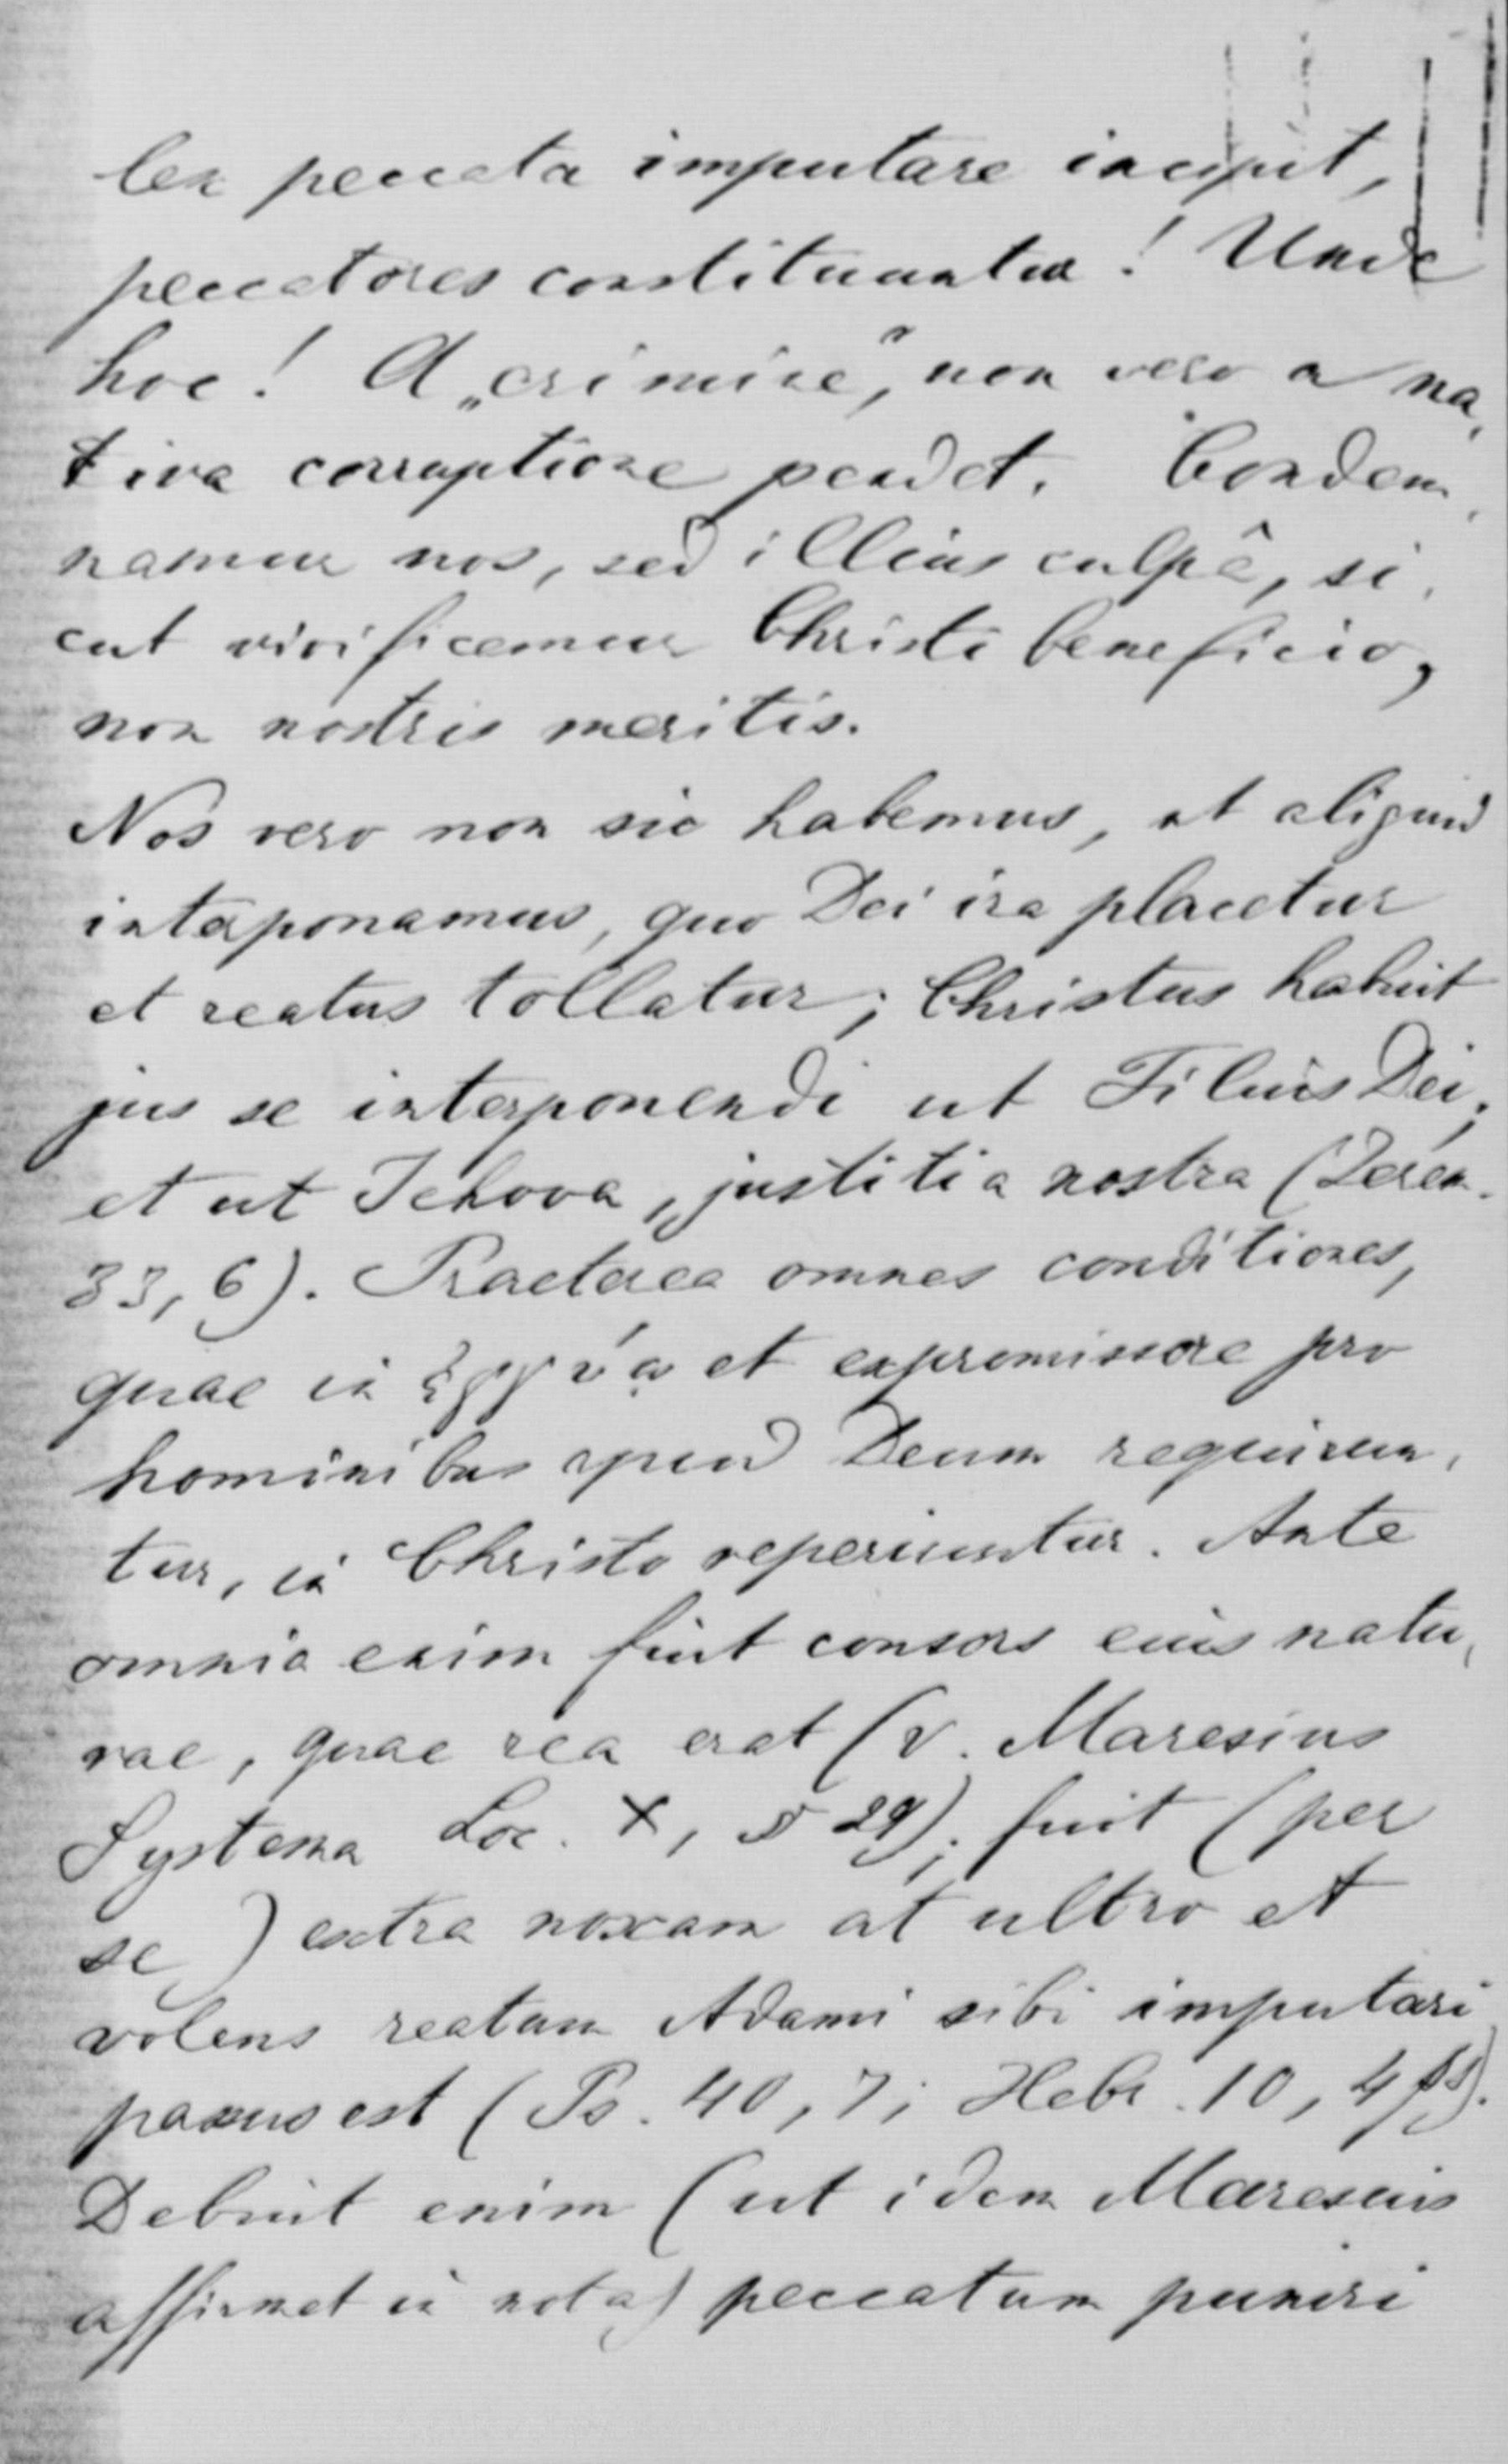 lex peccata imputare incipit,
peccatores constituuntur! Unde
hoc! A „crimine", non vero a na-
tiva corruptione pendet. Condem-
namur nos, sed illius culpâ, si-
cut vivificemur Christi beneficio,
non nostris meritis.
Nos vero non sic habemus, ut aliquid
interponamus, quo Dei ira placetur
et reatus tollatur; Christus habuit
jus se interponendi ut Filius Dei,
et ut Jehova, justitia nostra (Jerem.
33, 6). Praeterea omnes conditiones,
quae in ἐγγύῳ et expromissore pro
hominibus apud Deum requirun-
tur, in Christo reperiuntur. Ante
omnia enim fuit consors eius natu-
rae, quae rea erat (v. Maresius
Systema Loc. X, § 29); fuit (per
se) extra noxam at ultro et
volens reatum Adami sibi imputari
passus est (Ps. 40, 7; Hebr. 10, 4 ss).
Debuit enim (ut idem Maresius
affirmat in nota) peccatum puniri